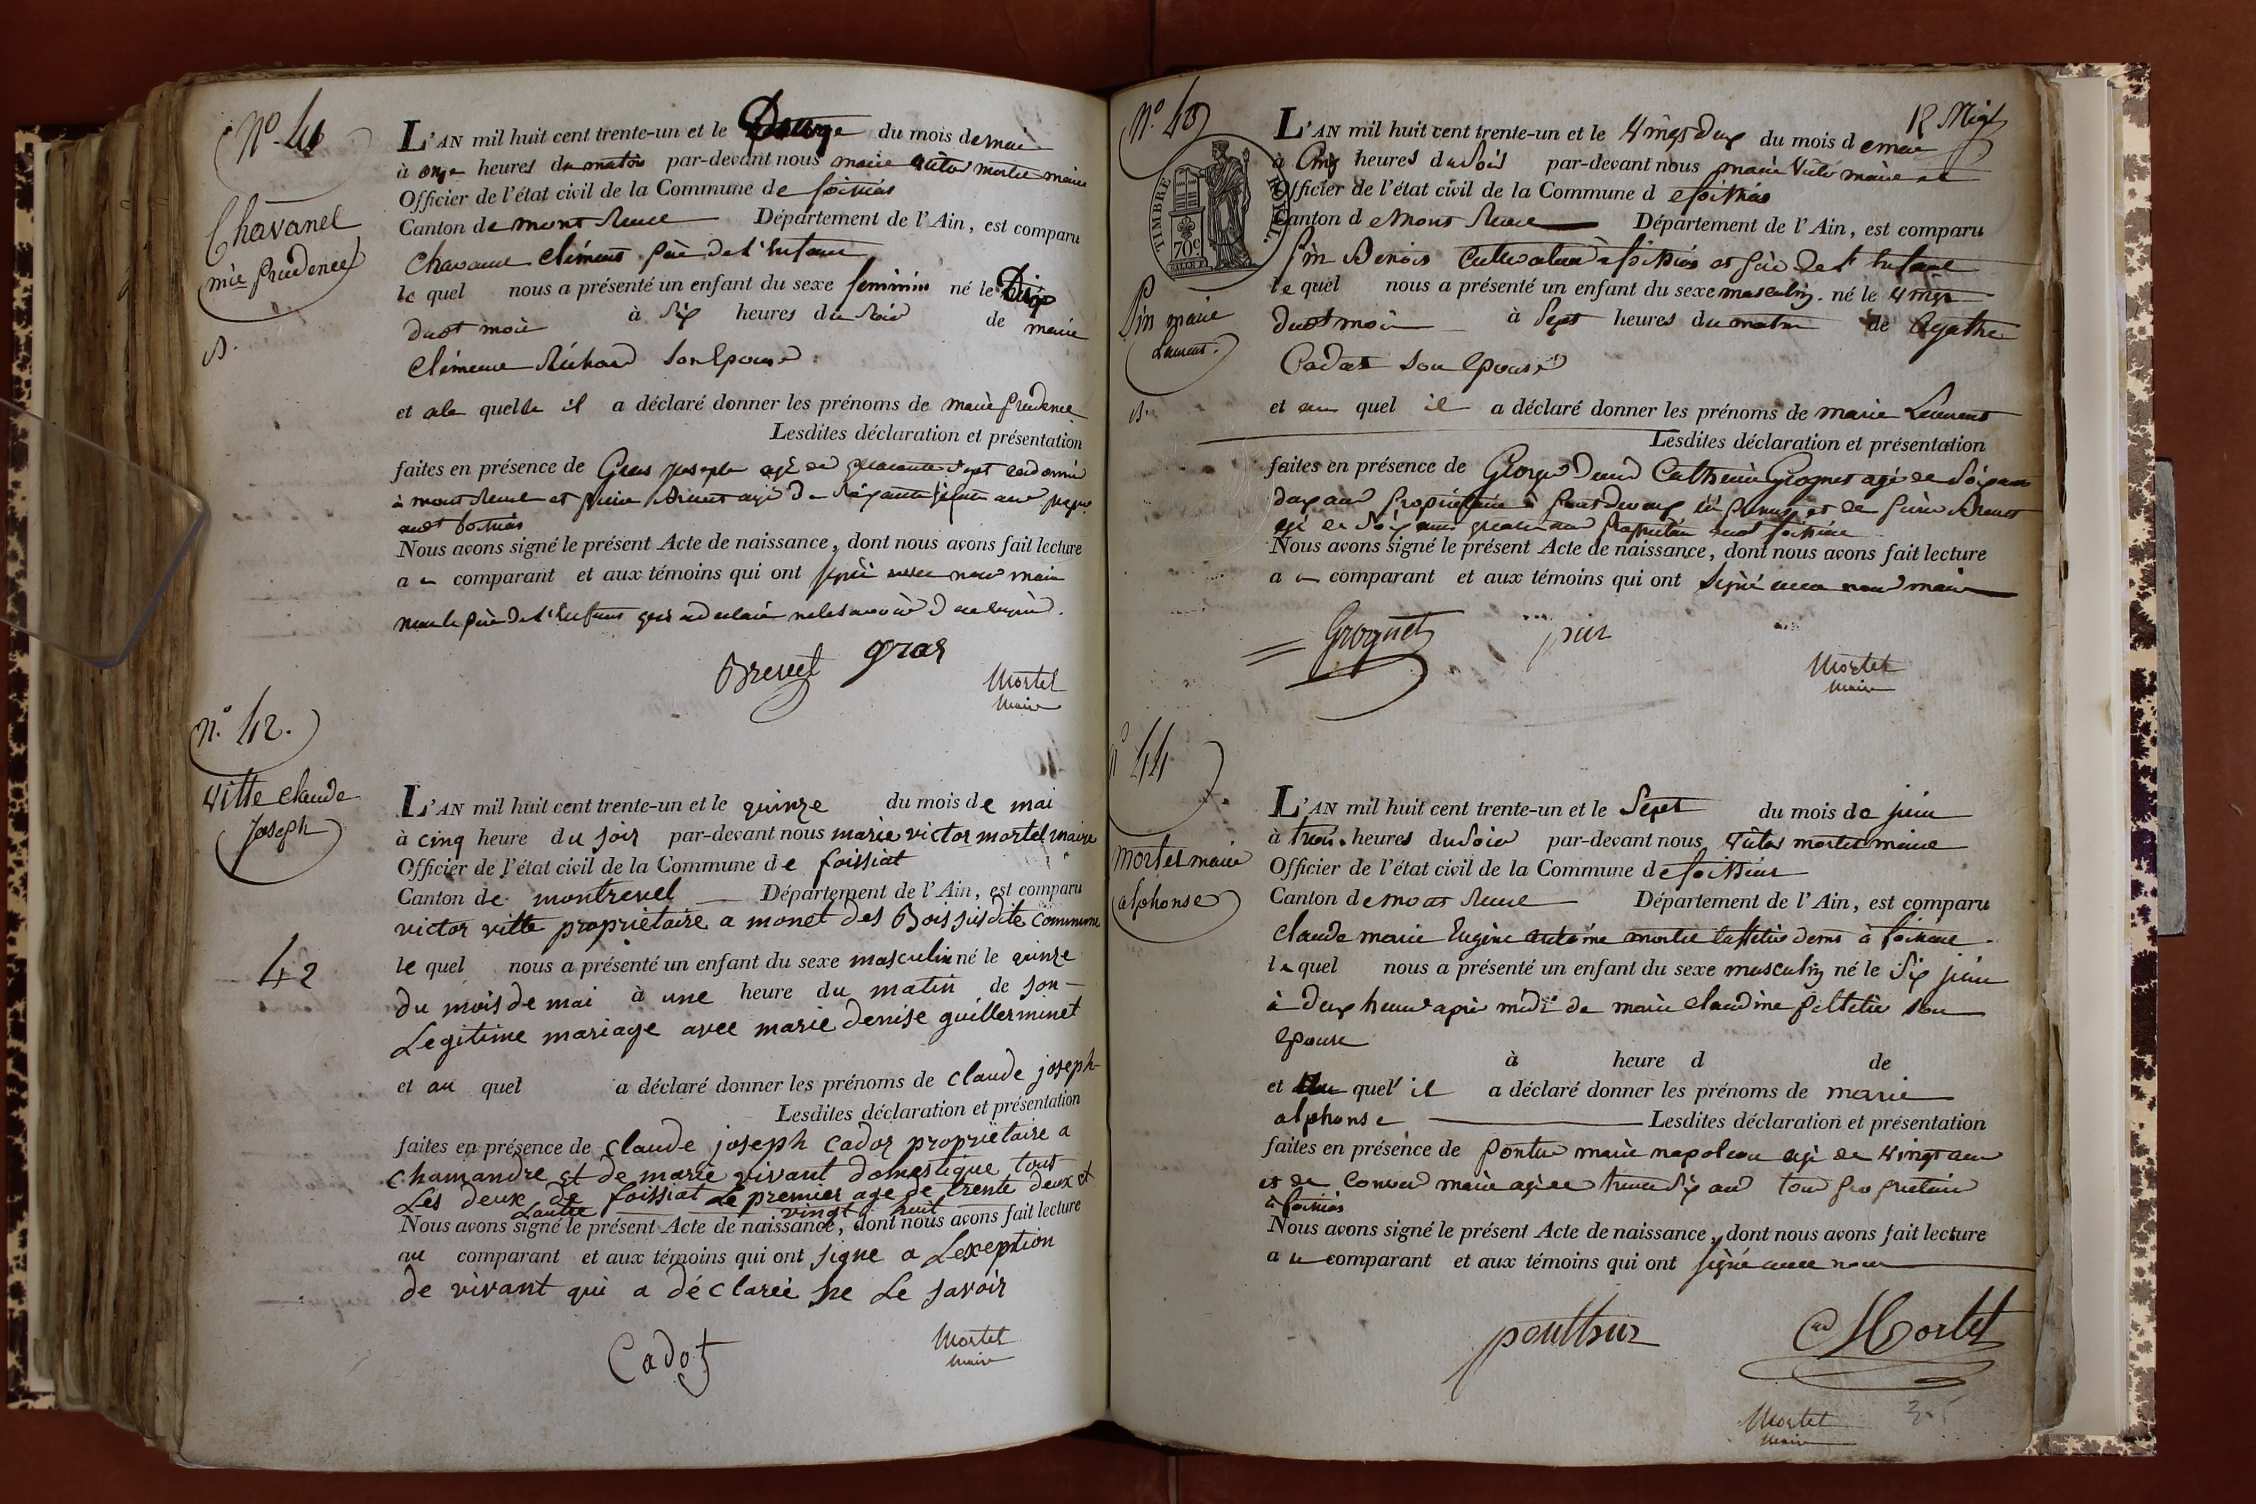 N.º 41
Chavanel
mie prudence
L'AN mil huit cent trente-un et le Douze du mois de mai
à onze heures du matin par-devant nous marie victor mortel maire
Officier de l'état civil de la Commune de foissiat
Canton de mont Revel Département de l'Ain, est comparu
Chavanel Clément père de l'Enfant
le quel nous a présenté un enfant du sexe feminin né le Dix
dudt mois à Six heures du Soir de marie
Clémence Richard Son Epouse
et a la quelle il a déclaré donner les prénoms de marie prudence
Lesdites déclaration et présentation
faites en présence de Gras Joseph agé de quarante Sept ans
à mont Revel et Brevet agé de Soixante ans
audt foissiat
Nous avons signé le présent Acte de naissance, dont nous avons fait lecture
au comparant et aux témoins qui ont signé avec nous maire
non le père de l'Enfant qui a déclaré ne le savoir
Brevet gras
Mortel
Maire
N.º 42.
Vitte Claude
Joseph
42
L'AN mil huit cent trente-un et le quinze du mois de mai
à cinq heure du soir par-devant nous marie victor mortel maire
Officier de l'état civil de la Commune de foissiat
Canton de montrevel Département de l'Ain, est comparu
victor vitte propriètaire a monet des Bois susdite commune
le quel nous a présenté un enfant du sexe masculin né le quinze
du mois de mai à une heure du matin de son
Legitime mariage avec marie denise guillerminet
et au quel a déclaré donner les prénoms de claude joseph
Lesdites déclaration et présentation
faites en présence de claude joseph cador propriètaire a
chamandre et de marie vivant domestique tous
Les deux de foissiat Le premier age de trente deux et
Lautre vingt huit
Nous avons signé le présent Acte de naissance, dont nous avons fait lecture
au comparant et aux témoins qui ont signe a Lexeption
de vivant qui a déclareé ne Le savoir
Cadot
Mortel
Maire
N.º 43
12 Migt
TIMBRE ROYAL.
70c
Pin marie
Laurent.
L'AN mil huit cent trente-un et le Vingt Deux du mois de mai
à Cinq heures du Soir par-devant nous marie Victor maire
Officier de l'état civil de la Commune de foissiat
Canton de Mont Revel Département de l'Ain, est comparu
Pin Benoit Cultivateur à foissiat et père de l'Enfant
le quel nous a présenté un enfant du sexe masculin né le Vingt
dudt mois à Sept heures du matin de Agathe
Cadot Son Epouse
et au quel il a déclaré donner les prénoms de marie Laurent
Lesdites déclaration et présentation
faites en présence de Catherin Grognet agé de Soixante
deux ans Propriétaire à et de Brevet
agé de Soixante quatre ans Propriétaire audt foissiat
Nous avons signé le présent Acte de naissance, dont nous avons fait lecture
au comparant et aux témoins qui ont Signé avec nous maire
Grognet pin
Mortel
Maire
Nº 44
Mortel marie
alphonse
L'AN mil huit cent trente-un et le Sept du mois de juin
à trois heures du Soir par-devant nous Victor mortel maire
Officier de l'état civil de la Commune de foissiat
Canton de mont Revel Département de l'Ain, est comparu
Claude marie Eugène antoine mortel à foissiat
le quel nous a présenté un enfant du sexe masculin né le Six juin
à deux heures après midi de marie Claudine pelletier Son
Epouse
à heure d de
et au quel il a déclaré donner les prénoms de marie
alphonse Lesdites déclaration et présentation
faites en présence de marie napoleon agé de Vingt ans
et de marie agé de trente Six ans tous propriétaire
à foissiat
Nous avons signé le présent Acte de naissance, dont nous avons fait lecture
au comparant et aux témoins qui ont signé avec nous
Mortel
Mortel
Maire